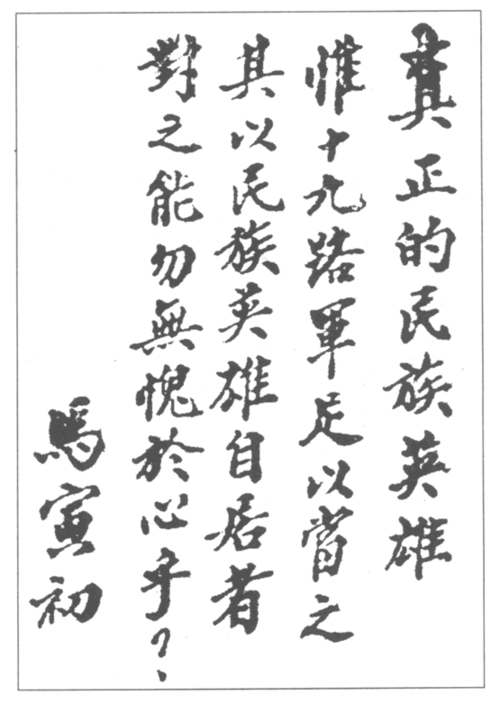 真正的民族英雄
惟十九路軍足以當之
其以民族英雄自居者
對之能勿無愧於心乎？
馬寅初